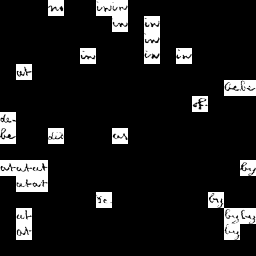 no in in
in in
in
in in in
at
be be
of
de
be die as
at at at by
at at
Se. by
at by by
at by